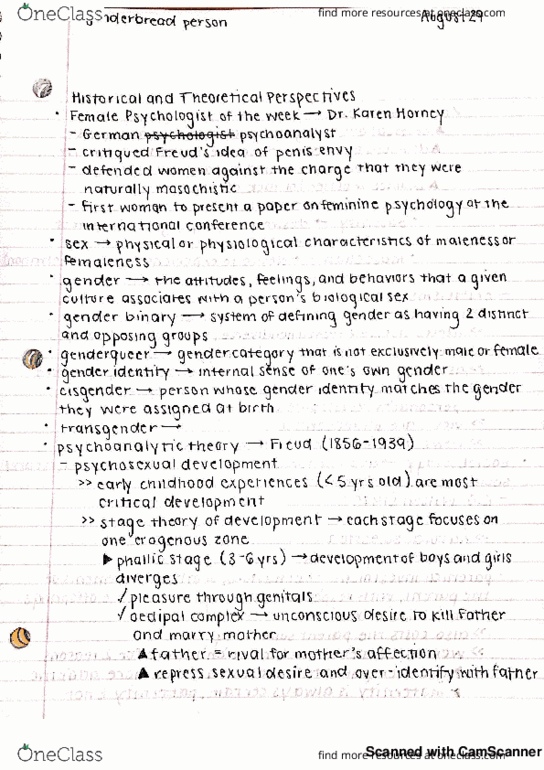 OneClass
find more resources at oneclass.com
August 29
gingerbread person
Historical and Theoretical Perspectives
• Female Psychologist of the week → Dr. Karen Horney
- German psychologist psychoanalyst
- critiqued Freud's idea of penis envy
- defended women against the charge that they were
naturally masochistic
- first woman to present a paper on feminine psychology at the
international conference
• sex → physical or physiological characteristics of maleness or
femaleness
• gender → the attitudes, feelings, and behaviors that a given
culture associates with a person's biological sex
• gender binary → system of defining gender as having 2 distinct
and opposing groups
• genderqueer → gender category that is not exclusively male or female
• gender identity → internal sense of one's own gender
• cisgender → person whose gender identity matches the gender
they were assigned at birth
• transgender →
• psychoanalytic theory → Freud (1856-1939)
- psychosexual development
>> early childhood experiences (<5 yrs old) are most
critical development
>> stage theory of development → each stage focuses on
one erogenous zone
▶ phallic stage (3-6 yrs) → development of boys and girls
diverges
✓ pleasure through genitals
✓ oedipal complex → unconscious desire to kill father
and marry mother
▲ father = rival for mother's affection
▲ repress sexual desire and over-identify with father
OneClass
find more resources at oneclass.com
Scanned with CamScanner